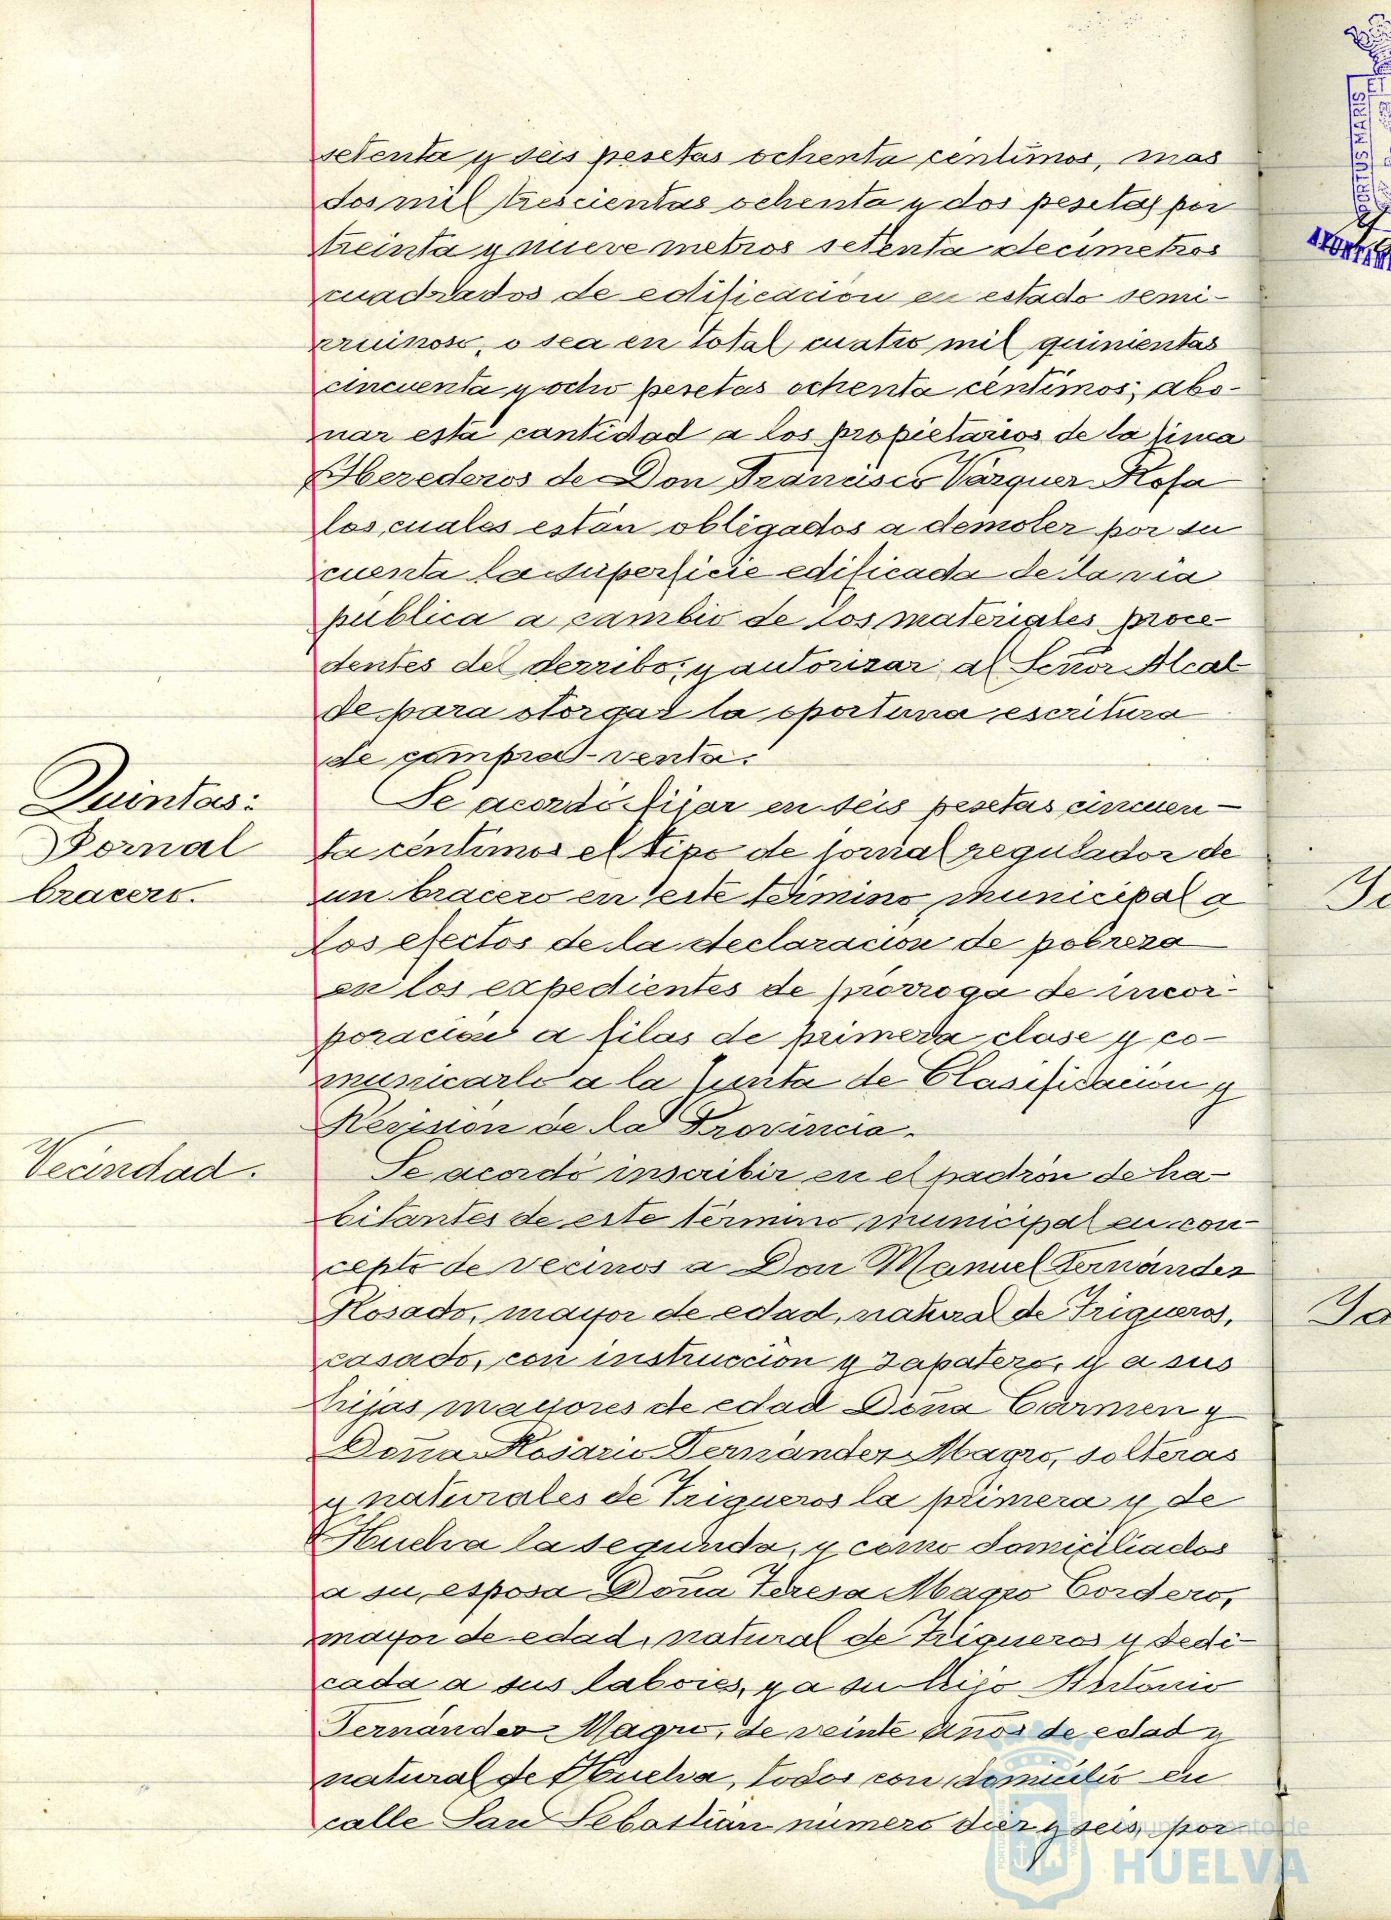 setenta y seis pesetas ochenta céntimos, mas
dos mil trescientas ochenta y dos pesetas por
treinta y nueve metros setenta decimetros
cuadrados de edificación en estado semi-
rruinoso, o sea en total cuatro mil quinientas
cincuenta y ocho pesetas ochenta céntimos; abo-
nar esta cantidad a los propietarios de la finca
Herederos de Don Francisco Vázquez Rosa
los cuales están obligados a demoler por su
cuenta la superficie edificada de la vía
pública a cambio de los materiales proce-
dentes del derribo; y autorizar al Señor Alcal-
de para otorgar la oportuna escritura
de compra-venta.
Quintas:
Jornal
bracero.
Se acordó fijar en seis pesetas cincuen-
ta céntimos el tipo de jornal regulador de
un bracero en este término municipal a
los efectos de la declaración de pobreza
en los expedientes de prórroga de incor-
poración a filas de primera clase y co-
municarlo a la Junta de Clasificación y
Revisión de la Provincia.
Vecindad.
Se acordó inscribir en el padrón de ha-
bitantes de este término municipal en con-
cepto de vecinos a Don Manuel Fernández
Rosado, mayor de edad, natural de Trigueros,
casado, con instrucción y zapatero, y a sus
hijas mayores de edad Doña Carmen y
Doña Rosario Fernández Magro, solteras
y naturales de Trigueros la primera y de
Huelva la segunda, y como domiciliados
a su esposa Doña Teresa Magro Cordero,
mayor de edad, natural de Trigueros y dedi-
cada a sus labores, y a su hijo Antonio
Fernández Magro, de veinte años de edad y
natural de Huelva, todos con domicilio en
calle San Sebastián número diez y seis, por
PORTUS MARIS
ET
AYUNTAM
HUELVA